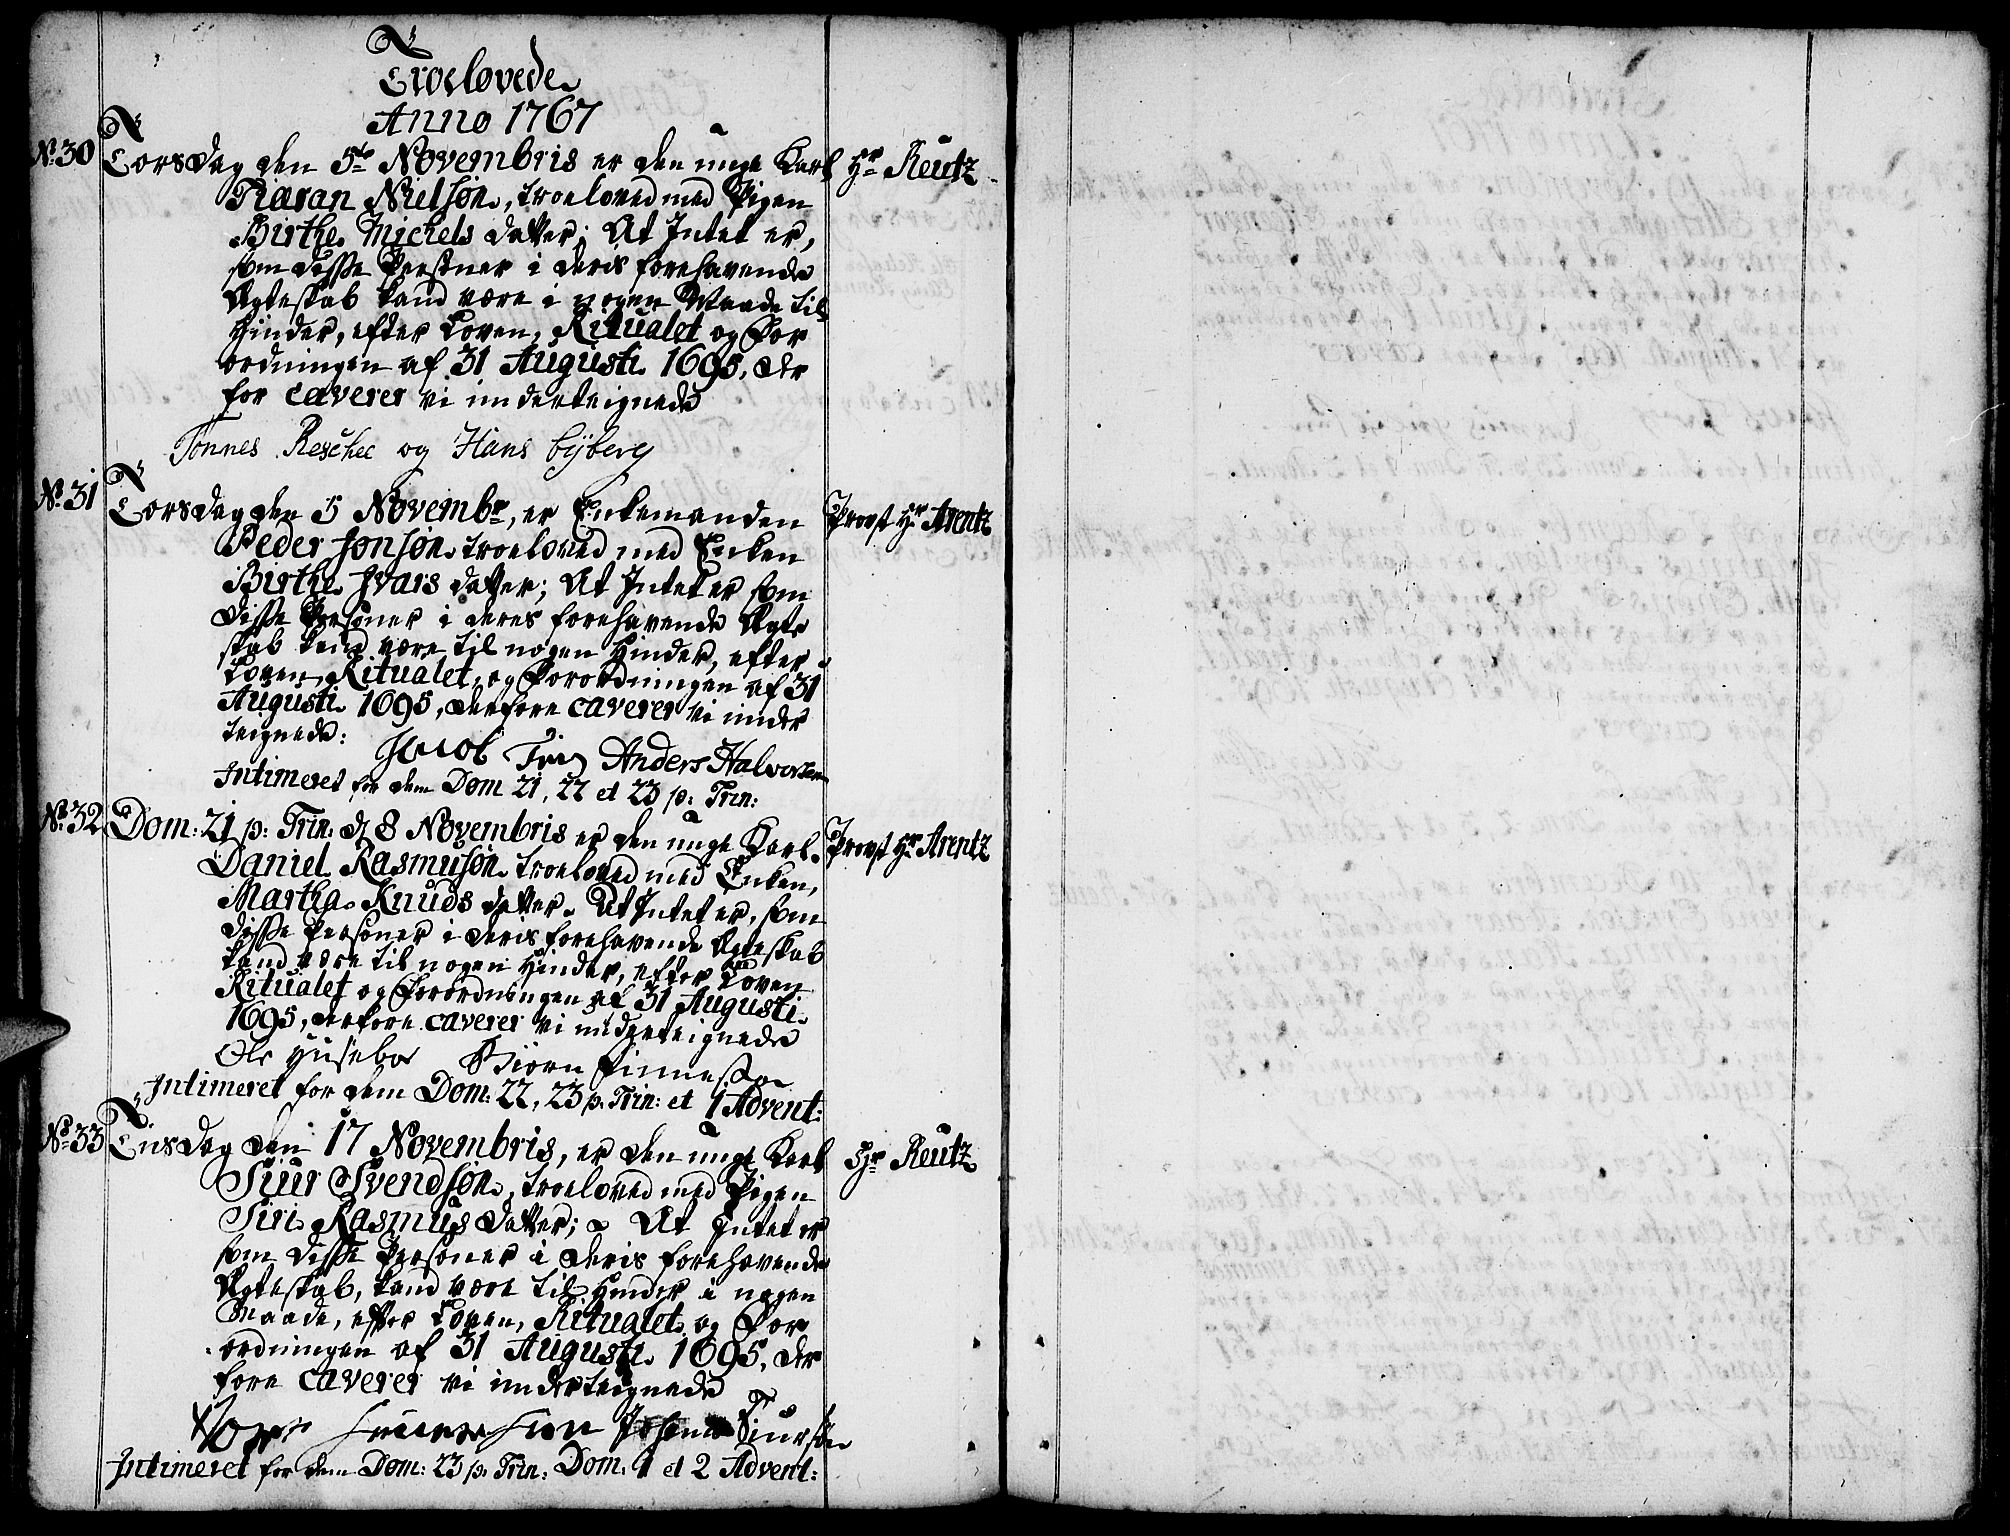 Troelovede
Anno 1767
No. 30 Torsdag den 5te Novembris er den unge Karl Hr Reutz
Niels­øn, troeloved med Pigen
Birthe Michels datter; At Intet er,
som disse Persohner i deris forehavende
Ægteskab kand være i nogen Maade til
Hinder, efter Loven, Ritualet og For
ordningen af 31 Augusti 1695, der
for caverer vi underteignede
Tønnes og Hans
No. 31 Torsdag den 5 Novembr, er Enkemanden Provst Hr Arentz
Peder Jonsøn troeloved med Enken
Birthe Ivars datter; At Intet er som
disse Personer i deres forehavende Ægte
skab kand være til nogen Hinder, efter
Loven, Ritualet, og Forordningen af 31
Augusti 1695, derfore caverer vi under
teignede:
Anders Halvorsen
Intimeret for dem Dom 21, 22 et 23 p: Trin:
No. 32 Dom: 21 p: Trin: d 8 Novembris er den unge Karl Provst Hr Arentz
Daniel Rasmusøn troeloved med Enken,
Martha Knuds datter. At Intet er, som
disse Personer i deris forehavende Ægteskab
kand være til nogen Hinder, efter Loven
Ritualet og Forordningen af 31 Augusti
1695, derfore caverer vi underteignede
Ole Husebøe Biørn
Intimeret for dem Dom: 22, 23 p: Trin: et 1 Advent:
No. 33 Tiisdag den 17 Novembris, er den unge Karl Hr Reutz
Siur Svendsøn, troeloved med Pigen
Siri Rasmus datter; At Intet er
som disse Personer i deris forehavende
Ægteskab, kand være til Hinder i nogen
Maade, efter Loven, Ritualet og For
ordningen af 31 Augusti 1695, der
fore caverer vi underteignede
Siursøn
Intimeret for dem Dom: 23 p: Trin: Dom: 1 et 2 Advent: